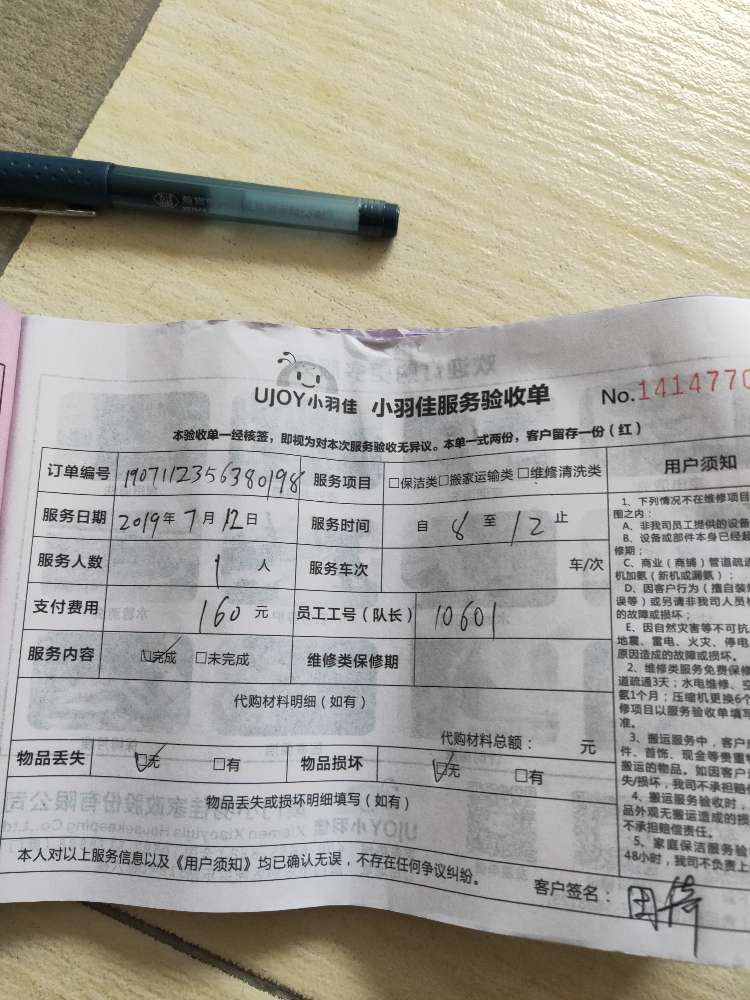 UJOY小羽佳 小羽佳服务验收单 No.1414770
本验收单一经核签，即视为对本次服务验收无异议。本单一式两份，客户留存一份（红）
订单编号 1907112356380198 服务项目 □保洁类□搬家运输类□维修清洗类
服务日期 2019年7月12日 服务时间 自 8 至 12 止
服务人数 1 人 服务车次 车/次
支付费用 160 元 员工工号（队长） 10601
服务内容 ☑完成 □未完成 维修类保修期
代购材料明细（如有）
代购材料总额： 元
物品丢失 ☑无 □有 物品损坏 ☑无 □有
物品丢失或损坏明细填写（如有）
本人对以上服务信息以及《用户须知》均已确认无误，不存在任何争议纠纷。
客户签名：
用户须知
1、下列情况不在维修项目
围之内：
A、非我司员工提供的设备
B、设备或部件本身已经超
修期；
C、商业（商铺）管道疏通
机加氨（新机或漏氨）；
D、因客户行为（擅自装
误等）或另请非我司人员
的故障或损坏；
E、因自然灾害等不可抗
地震、雷电、火灾、停电
原因造成的故障或损坏。
2、维修类服务免费保修
道疏通3天；水电维修、空
氨1个月；压缩机更换6个
修项目以服务验收单填写
准。
3、搬运服务中，客户
件、首饰、现金等贵重
搬运的物品。如因客户
失/损坏，我司不承担赔偿
4、搬运服务验收时，
品外观无搬运造成的损
不承担赔偿责任。
5、家庭保洁服务验
48小时，我司不负责上